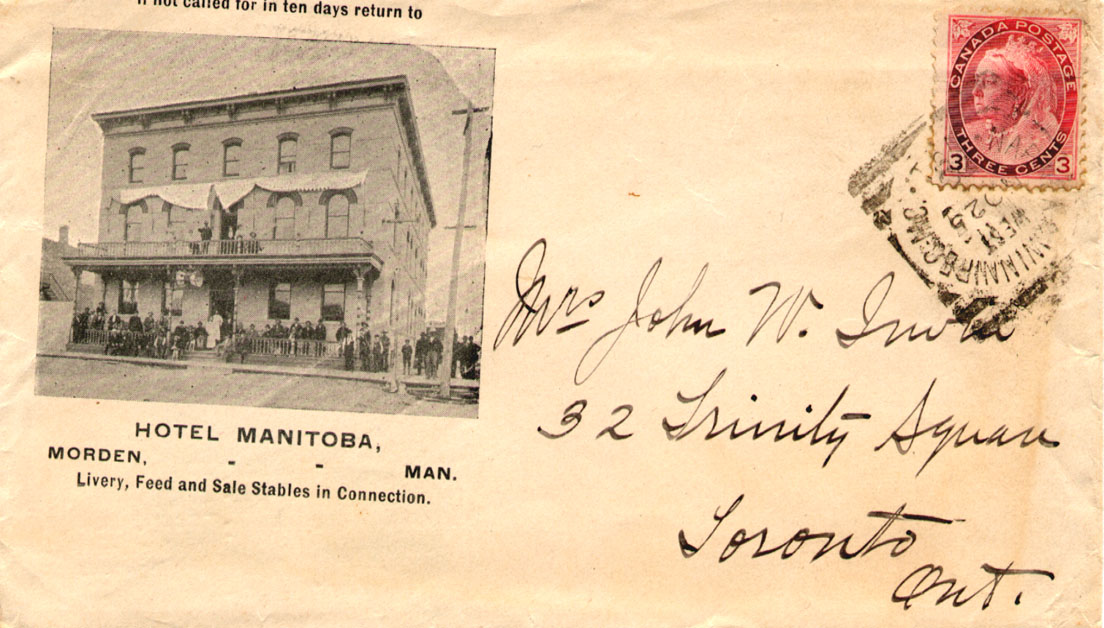 If not called for in ten days return to
HOTEL MANITOBA,
MORDEN, - - MAN.
Livery, Feed and Sale Stables in Connection.
CANADA POSTAGE
THREE CENTS
3 3
WEST
Mrs John W.
32 Trinity Square
Toronto
Ont.